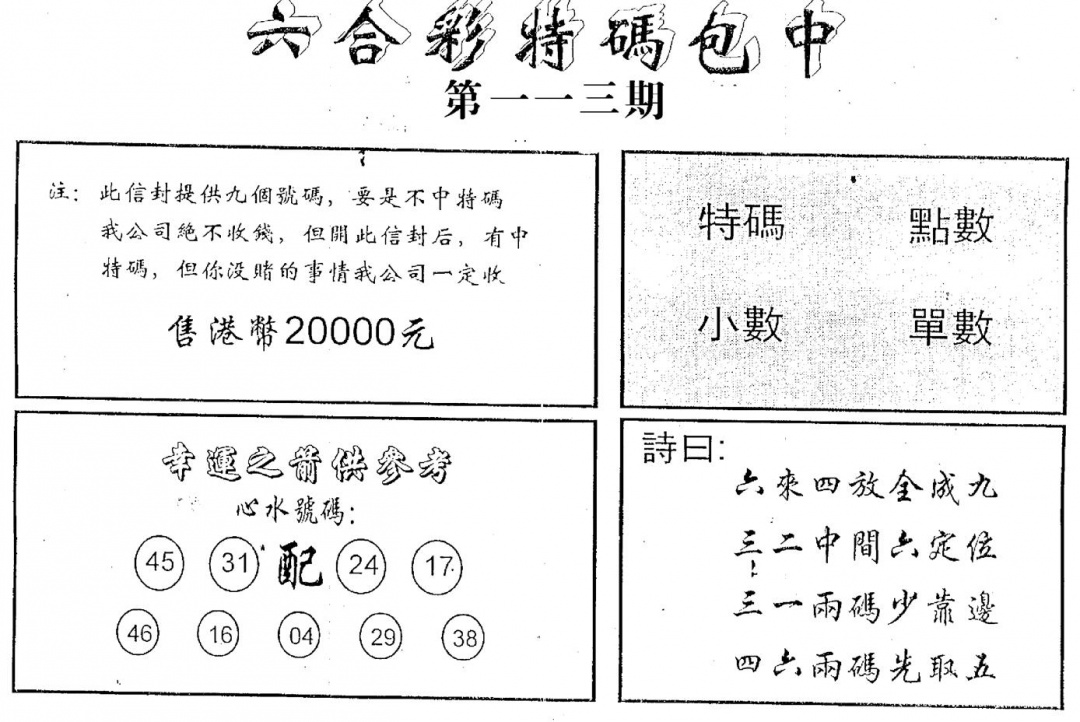 六合彩特碼包中
第一一三期
注：此信封提供九個號碼，要是不中特碼
我公司絕不收錢，但開此信封后，有中
特碼，但你没賭的事情我公司一定收
售港幣20000元
特碼 點數
小數 單數
幸運之箭供參考
心水號碼：
45 31 配 24 17
46 16 04 29 38
詩曰:
六來四放全成九
三二中間六定位
三一兩碼少靠邊
四六兩碼先取五